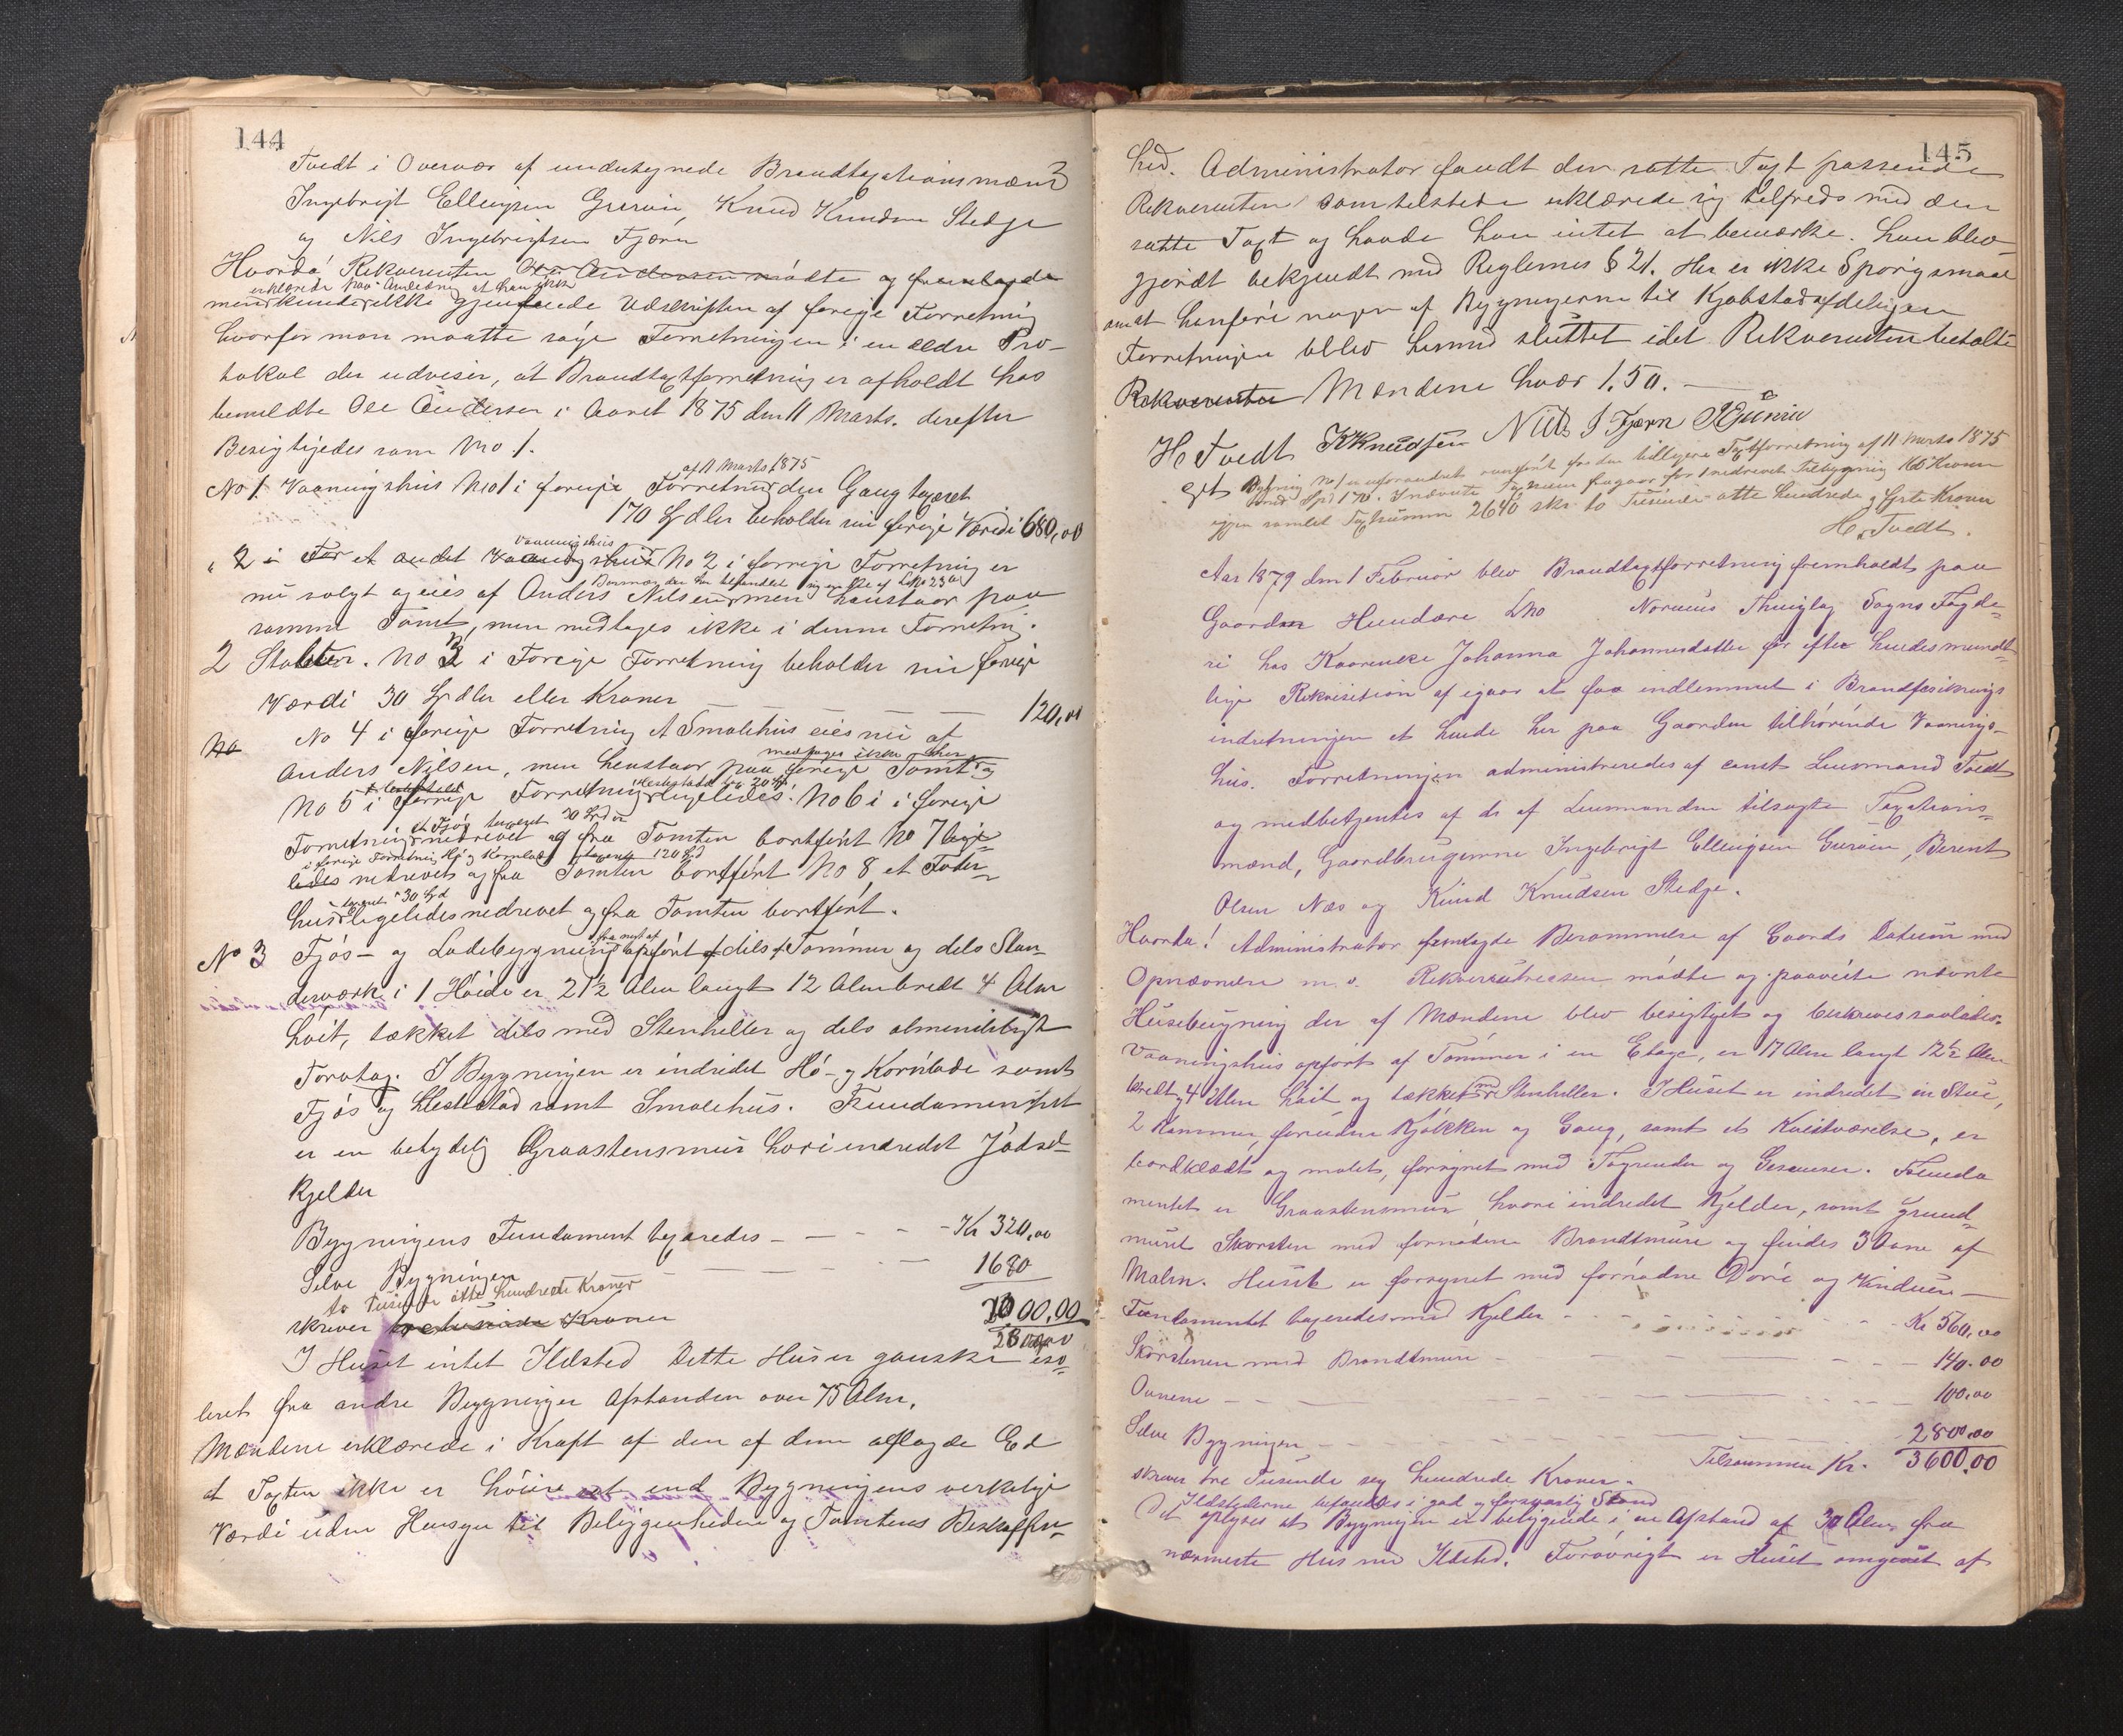 144
Tvedt i Overvær af undertegnede Brandtaxationsmænd
Ingebrigt Ellingsen Knud Knudsen Stedje
og Nils Ingebrigtsen Fjærn
Hvorda! Rekvirenten Ole Andersen mødte og fremlagde
erklærede paa Anledning at han ikke
men kunde ikke gjenfinde Udskriften af forrige Forretning
hvorfor man maatte søge Forretningen i en ældre Pro-
tokol der udviser, at Brandtaxtforretning er afholdt hos
bemeldte Ole Andersen i Aaret 1875 den 11 Marts. derefter
Besigtigedes som No 1.
af 11 Marts 1875
No 1. Vaaningshus No 1 i forrige Forretning den Gang taxeret
170 Spdlr beholder sin forrige Værdi 680,00
Vaaningshus
" 2 i For et andet Vaaningshus No 2 i forrige Forretning er
nu solgt og eies af Anders Nilsen men henstaar paa
samme Tomt, men medtages ikke i denne Forretning.
2 Stabben. No 3 i Forrige Forretning beholder sin forrige
Værdi 30 Spdlr eller Kroner — — — 120,00
No No 4 i forrige Forretning et Smalehus eies nu af
medtages ikke her
Anders Nilsen, men henstaar paa forrige Tomt og
No 5 i forrige Forretning ligeledes. No 6 i forrige
et Fjøs taxeret 30 Spdlr
Forretning nedrevet og fra Tomten bortført No 7 lige-
i forrige Forretning Hø og Kornlade taxeret 120 Spd
ledes nedrevet og fra Tomten bortført No 8, et Foder-
taxeret 30 Spd
hus ligeledes nedrevet og fra Tomten bortført.
fra nyt af
No 3 Fjøs- og Ladebygning opført af dels Tømmer og dels Stan-
derværk i 1 Høide er 21½ Alen langt 12 Alen bredt 4 Alen
høit, tækket dels med Stenheller og dels almindeligt
Torvtag. I Bygningen er indredet Hø- og Kornlade samt
Fjøs og Hestestad samt Smalehus. Fundamentet
er en betydelig Graastensmur hvori indredet Jødsel-
kjelder
Bygningens Fundament taxeredes — — — Kr 320,00
Selve Bygningen — — — 1680
to Tusinde otte hundrede Kroner
skriver to tusinde Kroner 2000,00
2800,00
I Huset intet Ildsted Dette Hus er ganske iso-
leret fra andre Bygninger Afstanden over 75 Alen.
Mændene erklærede i Kraft af den af dem aflagde Ed
at Taxten ikke er høiere sat end Bygningens virkelige
Værdi uden Hensyn til Beliggenheden og Tomtens Beskaffen-
145
hed. Administrator fandt den satte Taxt passende
Rekvirenten som tilstede erklærede sig tilfreds med den
satte Taxt og havde han intet at bemærke. Han blev
gjordt bekjendt med Reglernes § 21. Her er ikke Spørgsmaal
om at henføre nogen af Bygningerne til Kjøbstadafdelingen
Forretningen blev hermed sluttet idet Rekvirenten betalte
Rekvirenten Mændene hver 1.50. —
H. Tvedt KKnudsen Niels I Fjærn
Bygning No 1 er uforandret opført fra den tidligere Taxtforretning af 11 Marts 1875
igjen samlet Taxtsum 2640 skr. to Tusinde
H. Tvedt.
Aar 1879 den 1 Februar blev Brandtaxtforretning fremholdt paa
Gaarden Hundere Lno Norums Thinglag Sogns Fogde-
ri hos Kaarenike Johanna Johannesdatter for efter hendes mundt-
lige Rekvisition af igaar at faa indlemmet i Brandforsikrings
indretningen et hende her paa Gaarden tilhørende Vaanings-
hus. Forretningen administreredes af const Lensmand Tvedt
og medbetjentes af de af Lensmanden tilsagte Taxations-
mænd, Gaardbrugerne Ingebrigt Ellingsen Berent
Olsen Næs og Knud Knudsen Stedje.
Hvorda! Administrator fremlagde Berammelse af Gaards Datum med
Opnævnelse m. v. Rekvirentinden mødte og paaviste nævnte
Husebygning der af Mændene blev besigtiget og beskreves saaledes:
Vaaningshus opført af Tømmer i en Etage, er 17 Alen langt 12½ Alen
bredt, 4 Alen høit og tækket med Stenheller. I Huset er indredet en Stue,
2 Kammer foruden Kjøkken og Gang, samt et Kvistværelse, er
bordklædt og malet, forsynet med Tagrender og Gesimser. Funda
mentet er Graastensmur hvori indredet Kjelder, samt grund-
muret Skorsten med fornødne Brandtmure og findes 3 Ovne af
Malm. Huset er forsynet med fornødne Døre og Vinduer —
Fundamentet taxeredes med Kjelder — — — Kr 560,00
Skorstenen med Brandtmure — — — 140.00
Ovnene — — — 100.00
Selve Bygningen — — — 2800.00
Tilsammen Kr. 3600.00
skriver tre Tusinde sex hundrede Kroner.
Ildstederne befandtes i god og forsvarlig Stand
Det oplyses at Bygningen er beliggende i en Afstand af 30 Alen fra
nærmeste Hus med Ildsted. Forøvrigt er Huset omgivet af